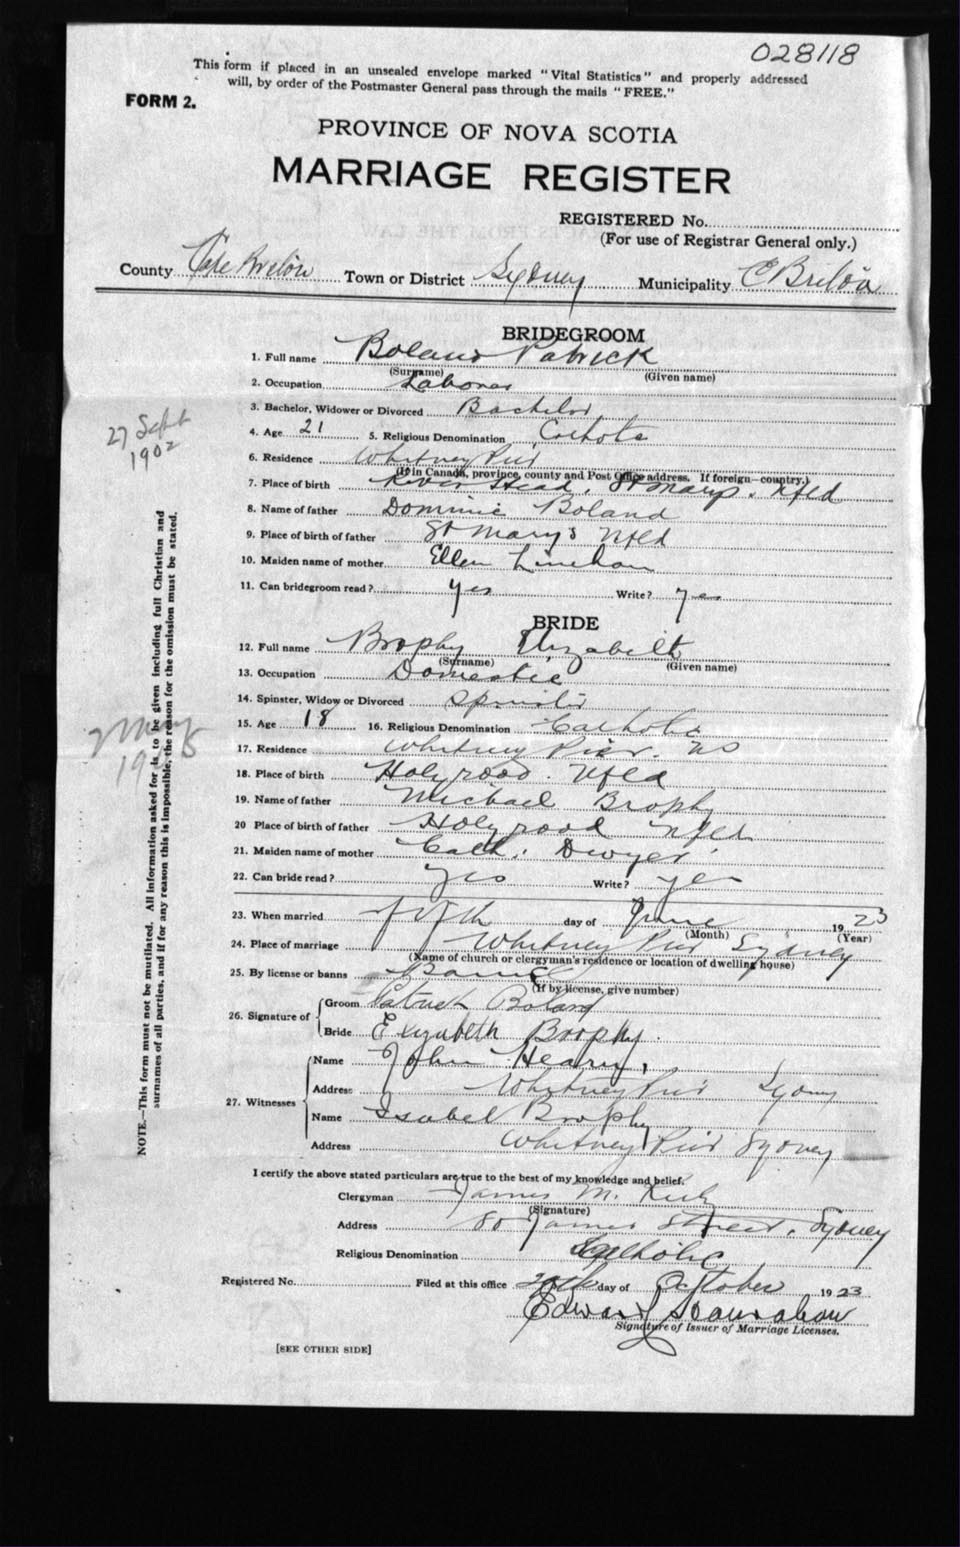 028118
This form if placed in an unsealed envelope marked "Vital Statistics" and properly addressed
will, by order of the Postmaster General pass through the mails "FREE."
FORM 2.
PROVINCE OF NOVA SCOTIA
MARRIAGE REGISTER
REGISTERED No.
(For use of Registrar General only.)
County Cape Breton Town or District Sydney Municipality C Breton
BRIDEGROOM
1. Full name Boland Patrick
(Surname) (Given name)
2. Occupation Laborer
3. Bachelor, Widower or Divorced Bachelor
4. Age 21 5. Religious Denomination Catholic
27 Sept
1902
6. Residence Whitney Pier
(If in Canada, province, county and Post Office address. If foreign—country.)
7. Place of birth River Head, St Marys. Nfld
8. Name of father Dominic Boland
9. Place of birth of father St Mary's Nfld
10. Maiden name of mother Ellen Linehan
11. Can bridegroom read? Yes Write? yes
BRIDE
12. Full name Brophy Elizabeth
(Surname) (Given name)
13. Occupation Domestic
14. Spinster, Widow or Divorced Spinster
15. Age 18 16. Religious Denomination Catholic
17. Residence Whitney Pier. NS
18. Place of birth Holyrood. Nfld
19. Name of father Michael Brophy
20 Place of birth of father Holyrood Nfld
21. Maiden name of mother Cath. Dwyer
22. Can bride read? Yes Write? yes
23. When married fifth day of June 1923
(Month) (Year)
24. Place of marriage Whitney Pier Sydney
(Name of church or clergyman's residence or location of dwelling house)
25. By license or banns Banns
(If by license, give number)
26. Signature of Groom Patrick Boland
Bride Elizabeth Brophy.
27. Witnesses Name John Hearn,
Address Whitney Pier Sydney
Name Isabel Brophy
Address Whitney Pier Sydney
I certify the above stated particulars are true to the best of my knowledge and belief.
Clergyman James M. Kiely
(Signature)
Address 80 James Street, Sydney
Religious Denomination Catholic
Registered No. Filed at this office day of October 1923
Edward
Signature of Issuer of Marriage Licenses.
[SEE OTHER SIDE]
NOTE.—This form must not be mutilated. All information asked for is to be given including full Christian and
surnames of all parties, and if for any reason this is impossible, the reason for the omission must be stated.